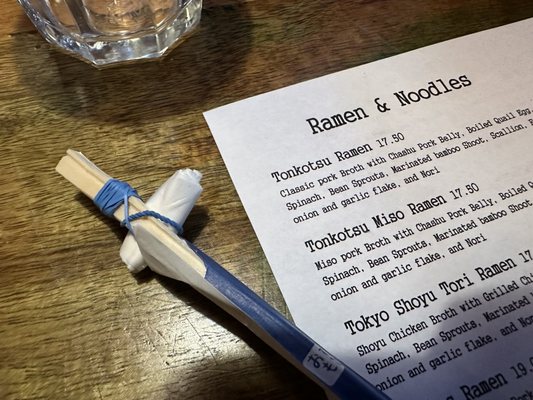 Ramen & Noodles
Tonkotsu Ramen 17.50
Classic pork Broth with Chashu Pork Belly, Boiled Quail Egg,
Spinach, Bean Sprouts, Marinated bamboo Shoot, Scallion,
onion and garlic flake, and Nori
Tonkotsu Miso Ramen 17.50
Miso pork Broth with Chashu Pork Belly, Boiled
Spinach, Bean Sprouts, Marinated bamboo Shoot
onion and garlic flake, and Nori
Tokyo Shoyu Tori Ramen
Shoyu Chicken Broth with Grilled
Spinach, Bean Sprouts, Marinated
onion and garlic flake, and
Ramen